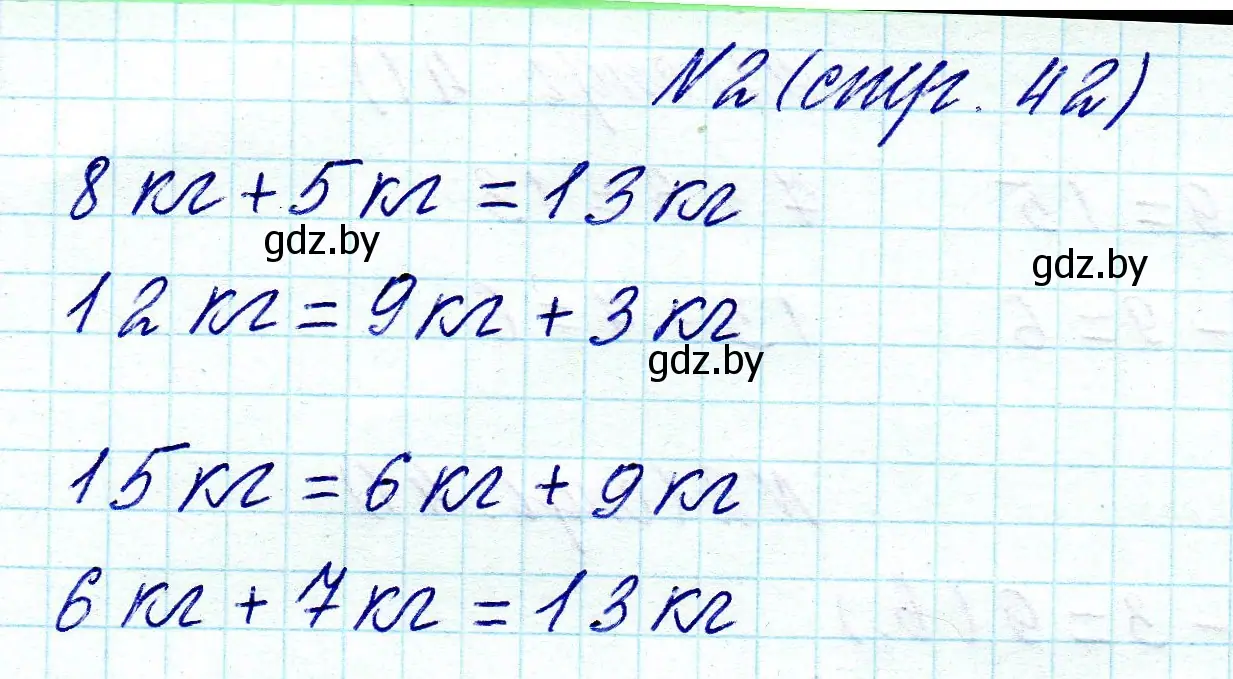 N2 (стр. 42)
8 кг + 5 кг = 13 кг
gdz.by
gdz.by
12 кг = 9 кг + 3 кг
gdz.by
15 кг = 6 кг + 9 кг
6 кг + 7 кг = 13 кг